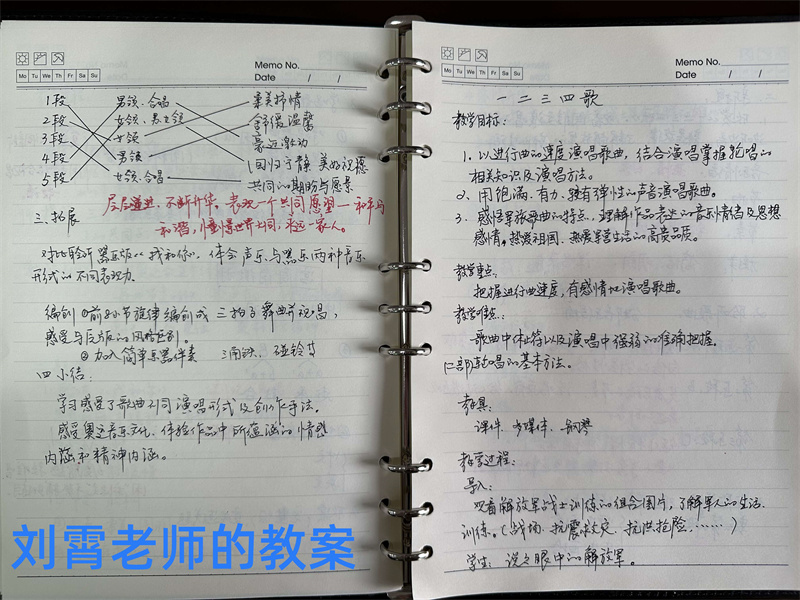 Memo No.
Mo Tu We Th Fr Sa Su
Date / /
1段 男领、合唱 柔美抒情
2段 女领、男女领 舒缓温馨
3段 女领 豪迈激动
4段 男领 (回归宁静 美好祝愿
5段 女领、合唱 共同的期盼与愿景
层层递进、不断升华。表现一个共同愿望——和平与
和谐,憧憬世界大同,永远一家人。
三、拓展
对比聆听器乐版《我和你》,体会声乐与器乐两种音乐
形式的不同表现力。
编创 ①前8小节旋律编创成三拍子舞曲并视唱,
感受与原版的风格区别。
②加入简单乐器伴奏 三角铁、碰铃等
四 小结:
学习感受了歌曲不同演唱形式及创作手法。
感受奥运音乐文化、体验作品中所蕴涵的情感
内涵和精神内涵。
刘霄老师的教案
Memo No.
Mo Tu We Th Fr Sa Su
Date / /
一二三四歌
教学目标:
1. 以进行曲的速度演唱歌曲,结合演唱掌握轮唱的
相关知识及演唱方法。
2、用饱满、有力、拥有弹性的声音演唱歌曲。
3、感悟军旅歌曲的特点,理解作品表达的音乐情绪及思想
感情。热爱祖国、热爱军营生活的高贵品质。
教学重点:
把握进行曲速度,有感情地演唱歌曲。
教学难点:
歌曲中休止符以及演唱中强弱的准确把握。
二部轮唱的基本方法。
教具:
课件、多媒体、钢琴
教学过程:
导入:
观看解放军战士训练的组合图片,了解军人的生活、
训练。(战场、抗震救灾、抗洪抢险,……)
学生: 说说眼中的解放军。